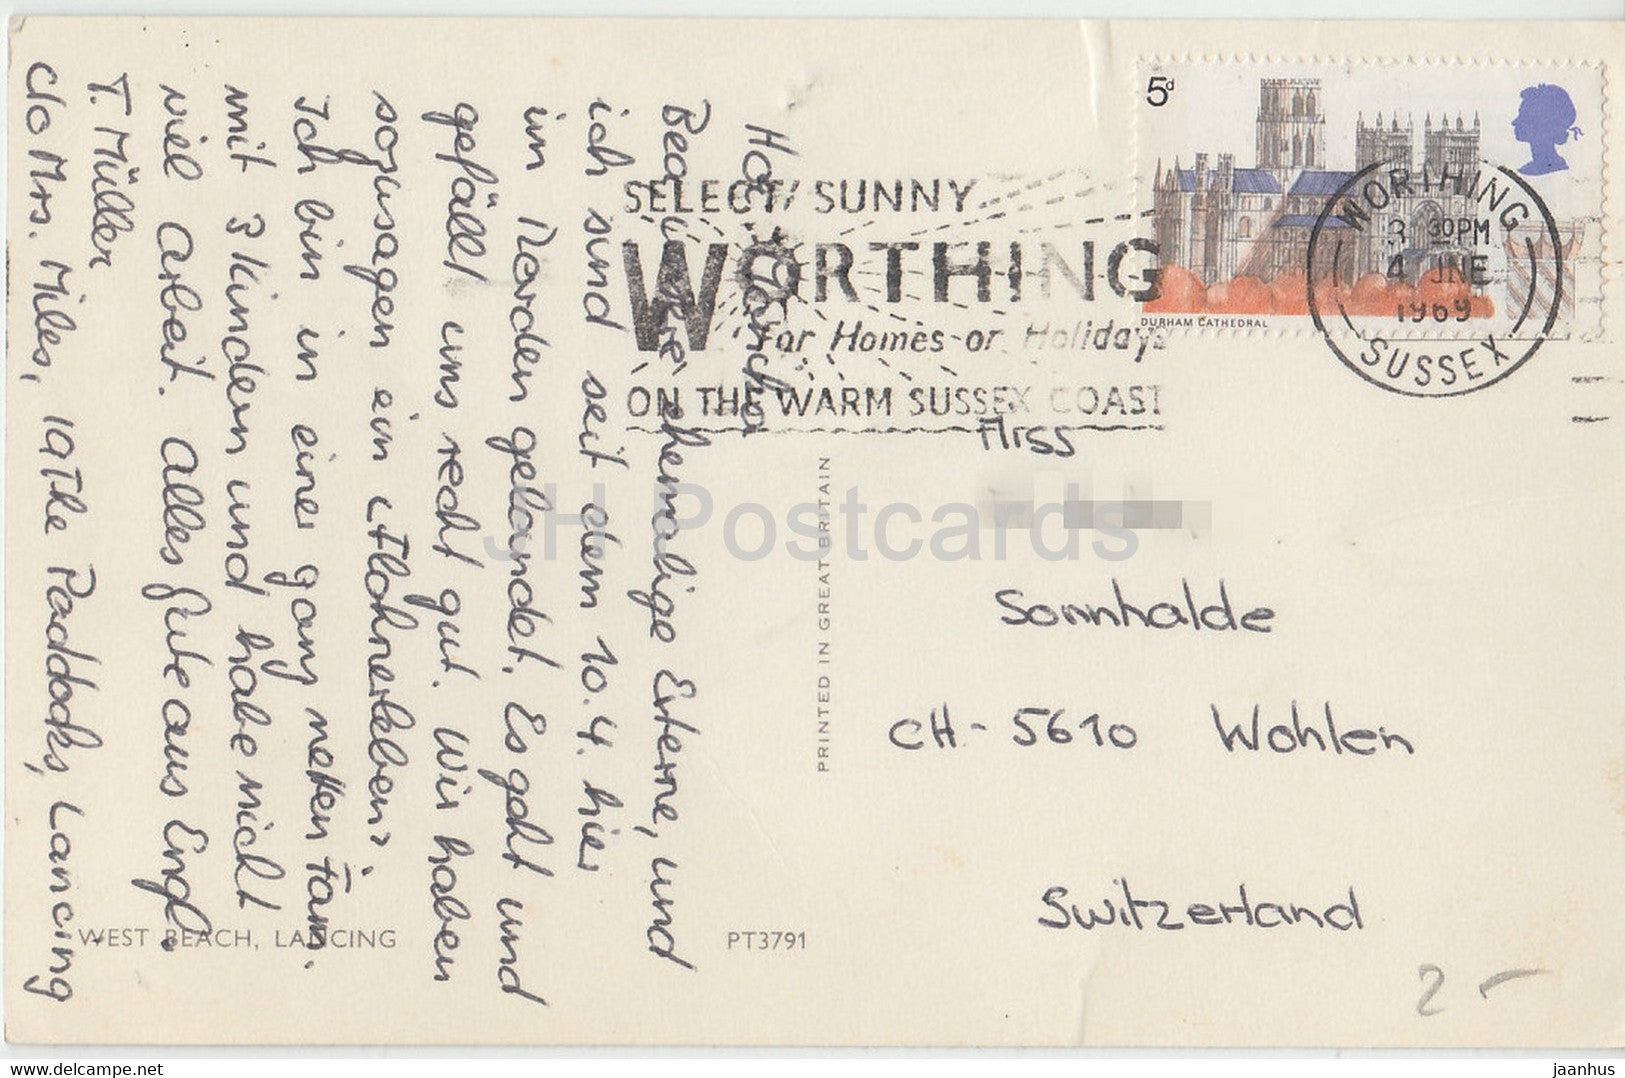 Hoi Mancha
Bea unsere ehemalige Externe, und
ich sind seit dem 10.4. hier
im Norden gelandet. Es geht und
gefällt uns recht gut. Wir haben
sozusagen ein "Flohnerleben".
Ich bin in einer ganz netten Fam.
mit 3 Kindern und habe nicht
viel Arbeit. Alles Gute aus Engl.
T. Müller
c/o Mrs. Miles, 19 The Paddocks, Lancing
WEST BEACH, LANCING
PT3791
PRINTED IN GREAT BRITAIN
SELECT SUNNY
WORTHING
For Homes or Holidays
ON THE WARM SUSSEX COAST
5d
DURHAM CATHEDRAL
WORTHING
3 30PM
4 JNE
1969
SUSSEX
Miss
Sonnhalde
CH-5610 Wohlen
Switzerland
2 -
JH Postcards
jaanhus